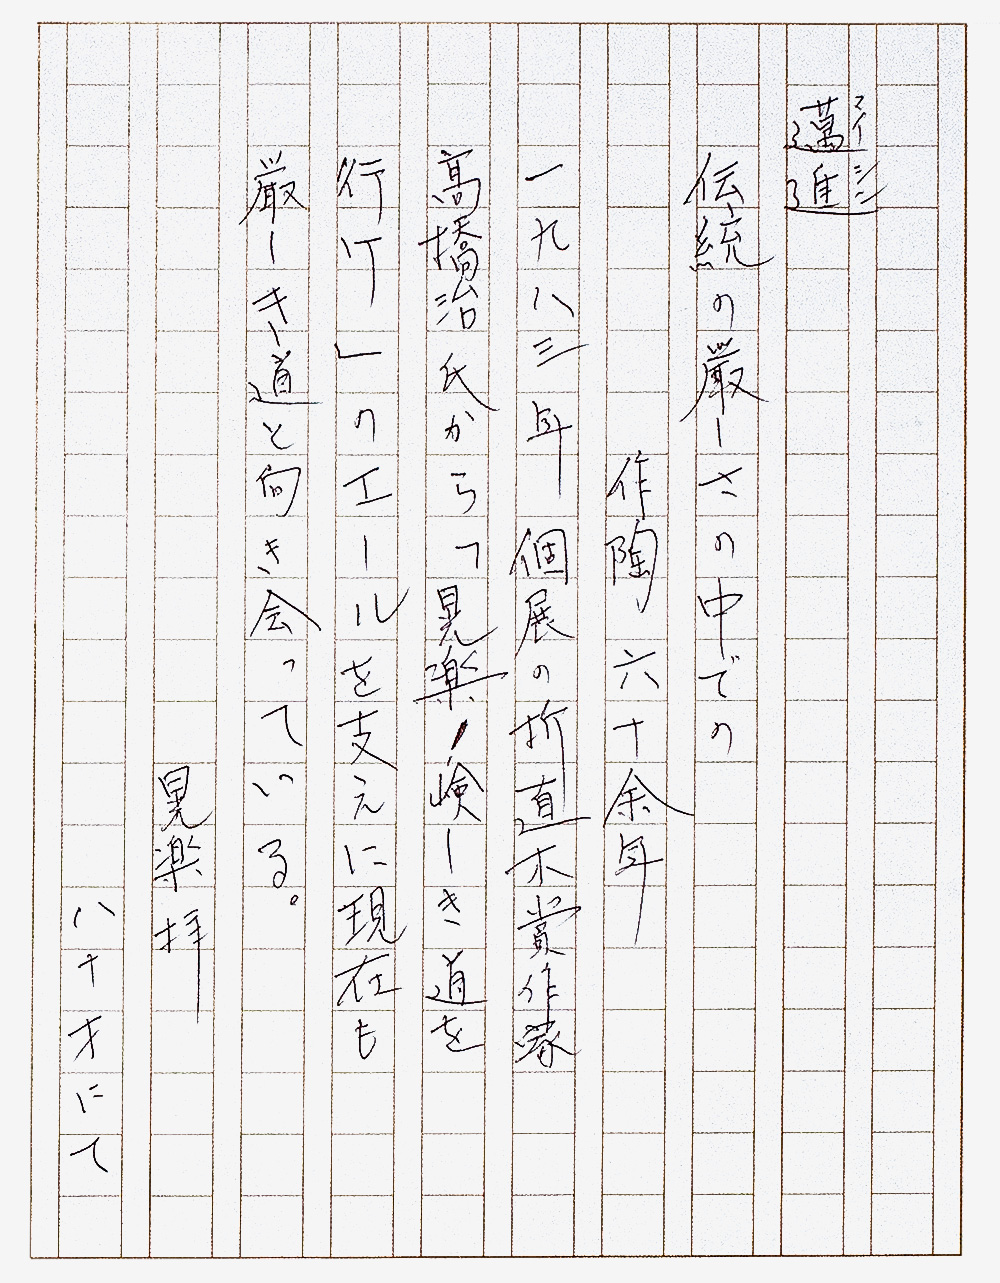 邁進
マイシン
伝統の厳しさの中での
作陶 六十余年
一九八三年 個展の折直木賞作家
高橋治氏から「晃楽ノ嶮しき道を
行け」のエールを支えに現在も
厳しき道と向き会っている。
晃楽 拝
八十才にて